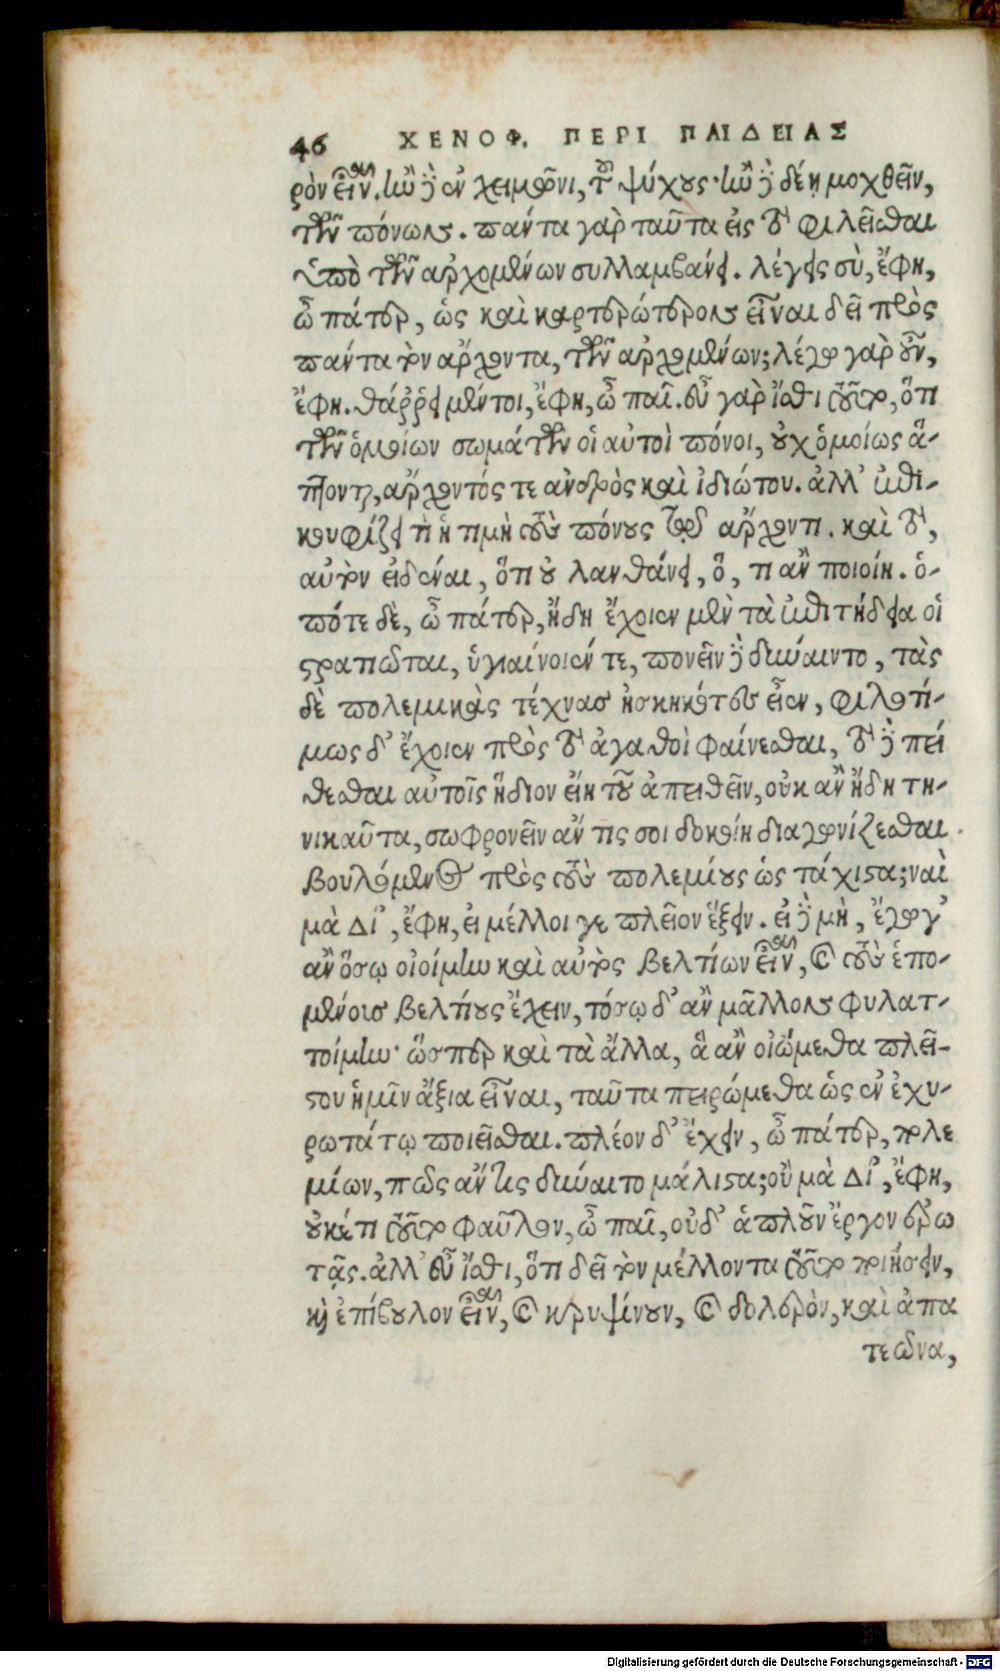 46 ΧΕΝΟΦ. ΠΕΡΙ ΠΑΙΔΕΙΑΣ
ρὸν εἶναι. ἢν δὲ ἐν χειμῶνι, τοῦ ψύχους· ἢν δὲ δέῃ μοχθεῖν,
τῶν πόνων. πάντα γὰρ ταῦτα εἰς τὸ φιλεῖσθαι
ὑπὸ τῶν ἀρχομένων συλλαμβάνει. λέγεις σὺ, ἔφη,
ὦ πάτερ, ὡς καὶ καρτερώτερον εἶναι δεῖ πρὸς
πάντα τὸν ἄρχοντα, τῶν ἀρχομένων; λέγω γὰρ οὖν,
ἔφη. θάῤῥει μέντοι, ἔφη, ὦ παῖ. εὖ γὰρ ἴσθι τοῦτο, ὅτι
τῶν ὁμοίων σωμάτων οἱ αὐτοὶ πόνοι, οὐχ ὁμοίως ἅ-
πτονται, ἄρχοντός τε ἀνδρὸς καὶ ἰδιώτου. ἀλλ' ἐπι-
κουφίζει τὶ ἡ τιμὴ τοὺς πόνους τῷ ἄρχοντι. καὶ τὸ,
αὐτὸν εἰδέναι, ὅτι οὐ λανθάνει, ὅ, τι ἂν ποιοίη. ὁ-
πότε δὲ, ὦ πάτερ, ἤδη ἔχοιεν μὲν τὰ ἐπιτήδεια οἱ
στρατιῶται, ὑγιαίνοιέν τε, πονεῖν δὲ δύναιντο, τὰς
δὲ πολεμικὰς τέχνας ἠσκηκότες εἶεν, φιλοτί-
μως δ' ἔχοιεν πρὸς τὸ ἀγαθοὶ φαίνεσθαι, τὸ δὲ πεί
θεσθαι αὐτοῖς ἥδιον εἴη τοῦ ἀπειθεῖν, οὐκ ἂν ἤδη τη-
νικαῦτα, σωφρονεῖν ἄν τις σοι δοκοίη διαγωνίζεσθαι
βουλόμενος πρὸς τοὺς πολεμίους ὡς τάχιστα; ναὶ
μὰ Δί', ἔφη, εἰ μέλλοι γε πλεῖον ἕξειν. εἰ δὲ μὴ, ἔγωγ'
ἂν ὅσῳ οἰοίμην καὶ αὐτὸς βελτίων εἶναι, καὶ τοὺς ἑπο-
μένοις βελτίους ἔχειν, τόσῳ δ' ἂν μᾶλλον φυλατ-
τοίμην· ὥσπερ καὶ τὰ ἄλλα, ἃ ἂν οἰώμεθα πλεί-
στου ἡμῖν ἄξια εἶναι, ταῦτα πειρώμεθα ὡς ἐν ἐχυ-
ρωτάτῳ ποιεῖσθαι. πλέον δ' ἔχειν, ὦ πάτερ, πολε
μίων, πῶς ἄν τις δύναιτο μάλιστα; οὐ μὰ Δί', ἔφη,
οὐκέτι τοῦτο φαῦλον, ὦ παῖ, οὐδ' ἁπλοῦν ἔργον ἐρω
τᾷς. ἀλλ' εὖ ἴσθι, ὅτι δεῖ τὸν μέλλοντα τοῦτο ποιήσειν,
καὶ ἐπίβουλον εἶναι, καὶ κρυψίνουν, καὶ δολερὸν, καὶ ἀπα
τεῶνα,
Digitalisierung gefördert durch die Deutsche Forschungsgemeinschaft - DFG